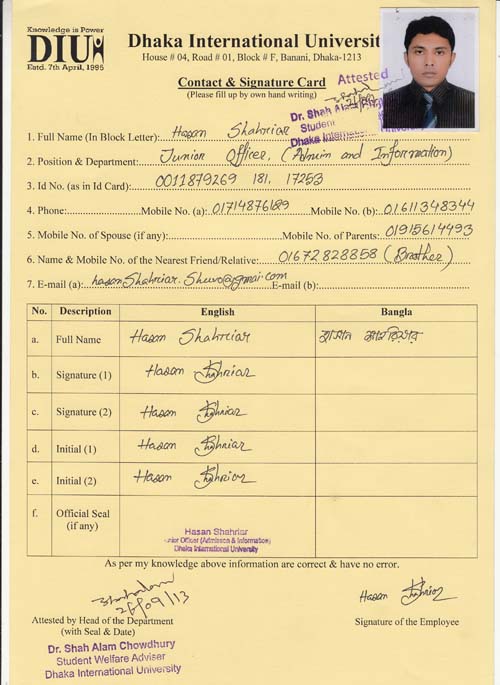 Knowledge is Power
DIU
Estd. 7th April, 1995
Dhaka International Universit
House # 04, Road # 01, Block # F, Banani, Dhaka-1213
Contact & Signature Card
(Please fill up by own hand writing)
Attested
Dr. Shah Alam
Student
Dhaka
1. Full Name (In Block Letter): Hasan Shahriar
2. Position & Department: Junior Officer, (Admin and Information)
3. Id No. (as in Id Card): 0011879269 181, 17253
4. Phone: Mobile No. (a): 01714876189 Mobile No. (b): 01611348344
5. Mobile No. of Spouse (if any): Mobile No. of Parents: 01915614493
6. Name & Mobile No. of the Nearest Friend/Relative: 01672828858 (Brother)
7. E-mail (a): hasanShahriar.Shuvo@gmai.com E-mail (b):
No. Description English Bangla
a. Full Name Hasan Shahriar হাসান শাহরিয়ার
b. Signature (1) Hasan Shahriar
c. Signature (2) Hasan Shahriar
d. Initial (1) Hasan Shahriar
e. Initial (2) Hasan Shahriar
f. Official Seal
(if any)
Hasan Shahriar
Junior Officer (Admission & Information)
Dhaka International University
As per my knowledge above information are correct & have no error.
26/09/13
Hasan Shahriar
Attested by Head of the Department
(with Seal & Date)
Signature of the Employee
Dr. Shah Alam Chowdhury
Student Welfare Adviser
Dhaka International University